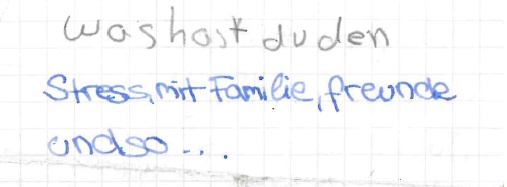 was hast du den
Stress, mit Familie, freunde
und so...